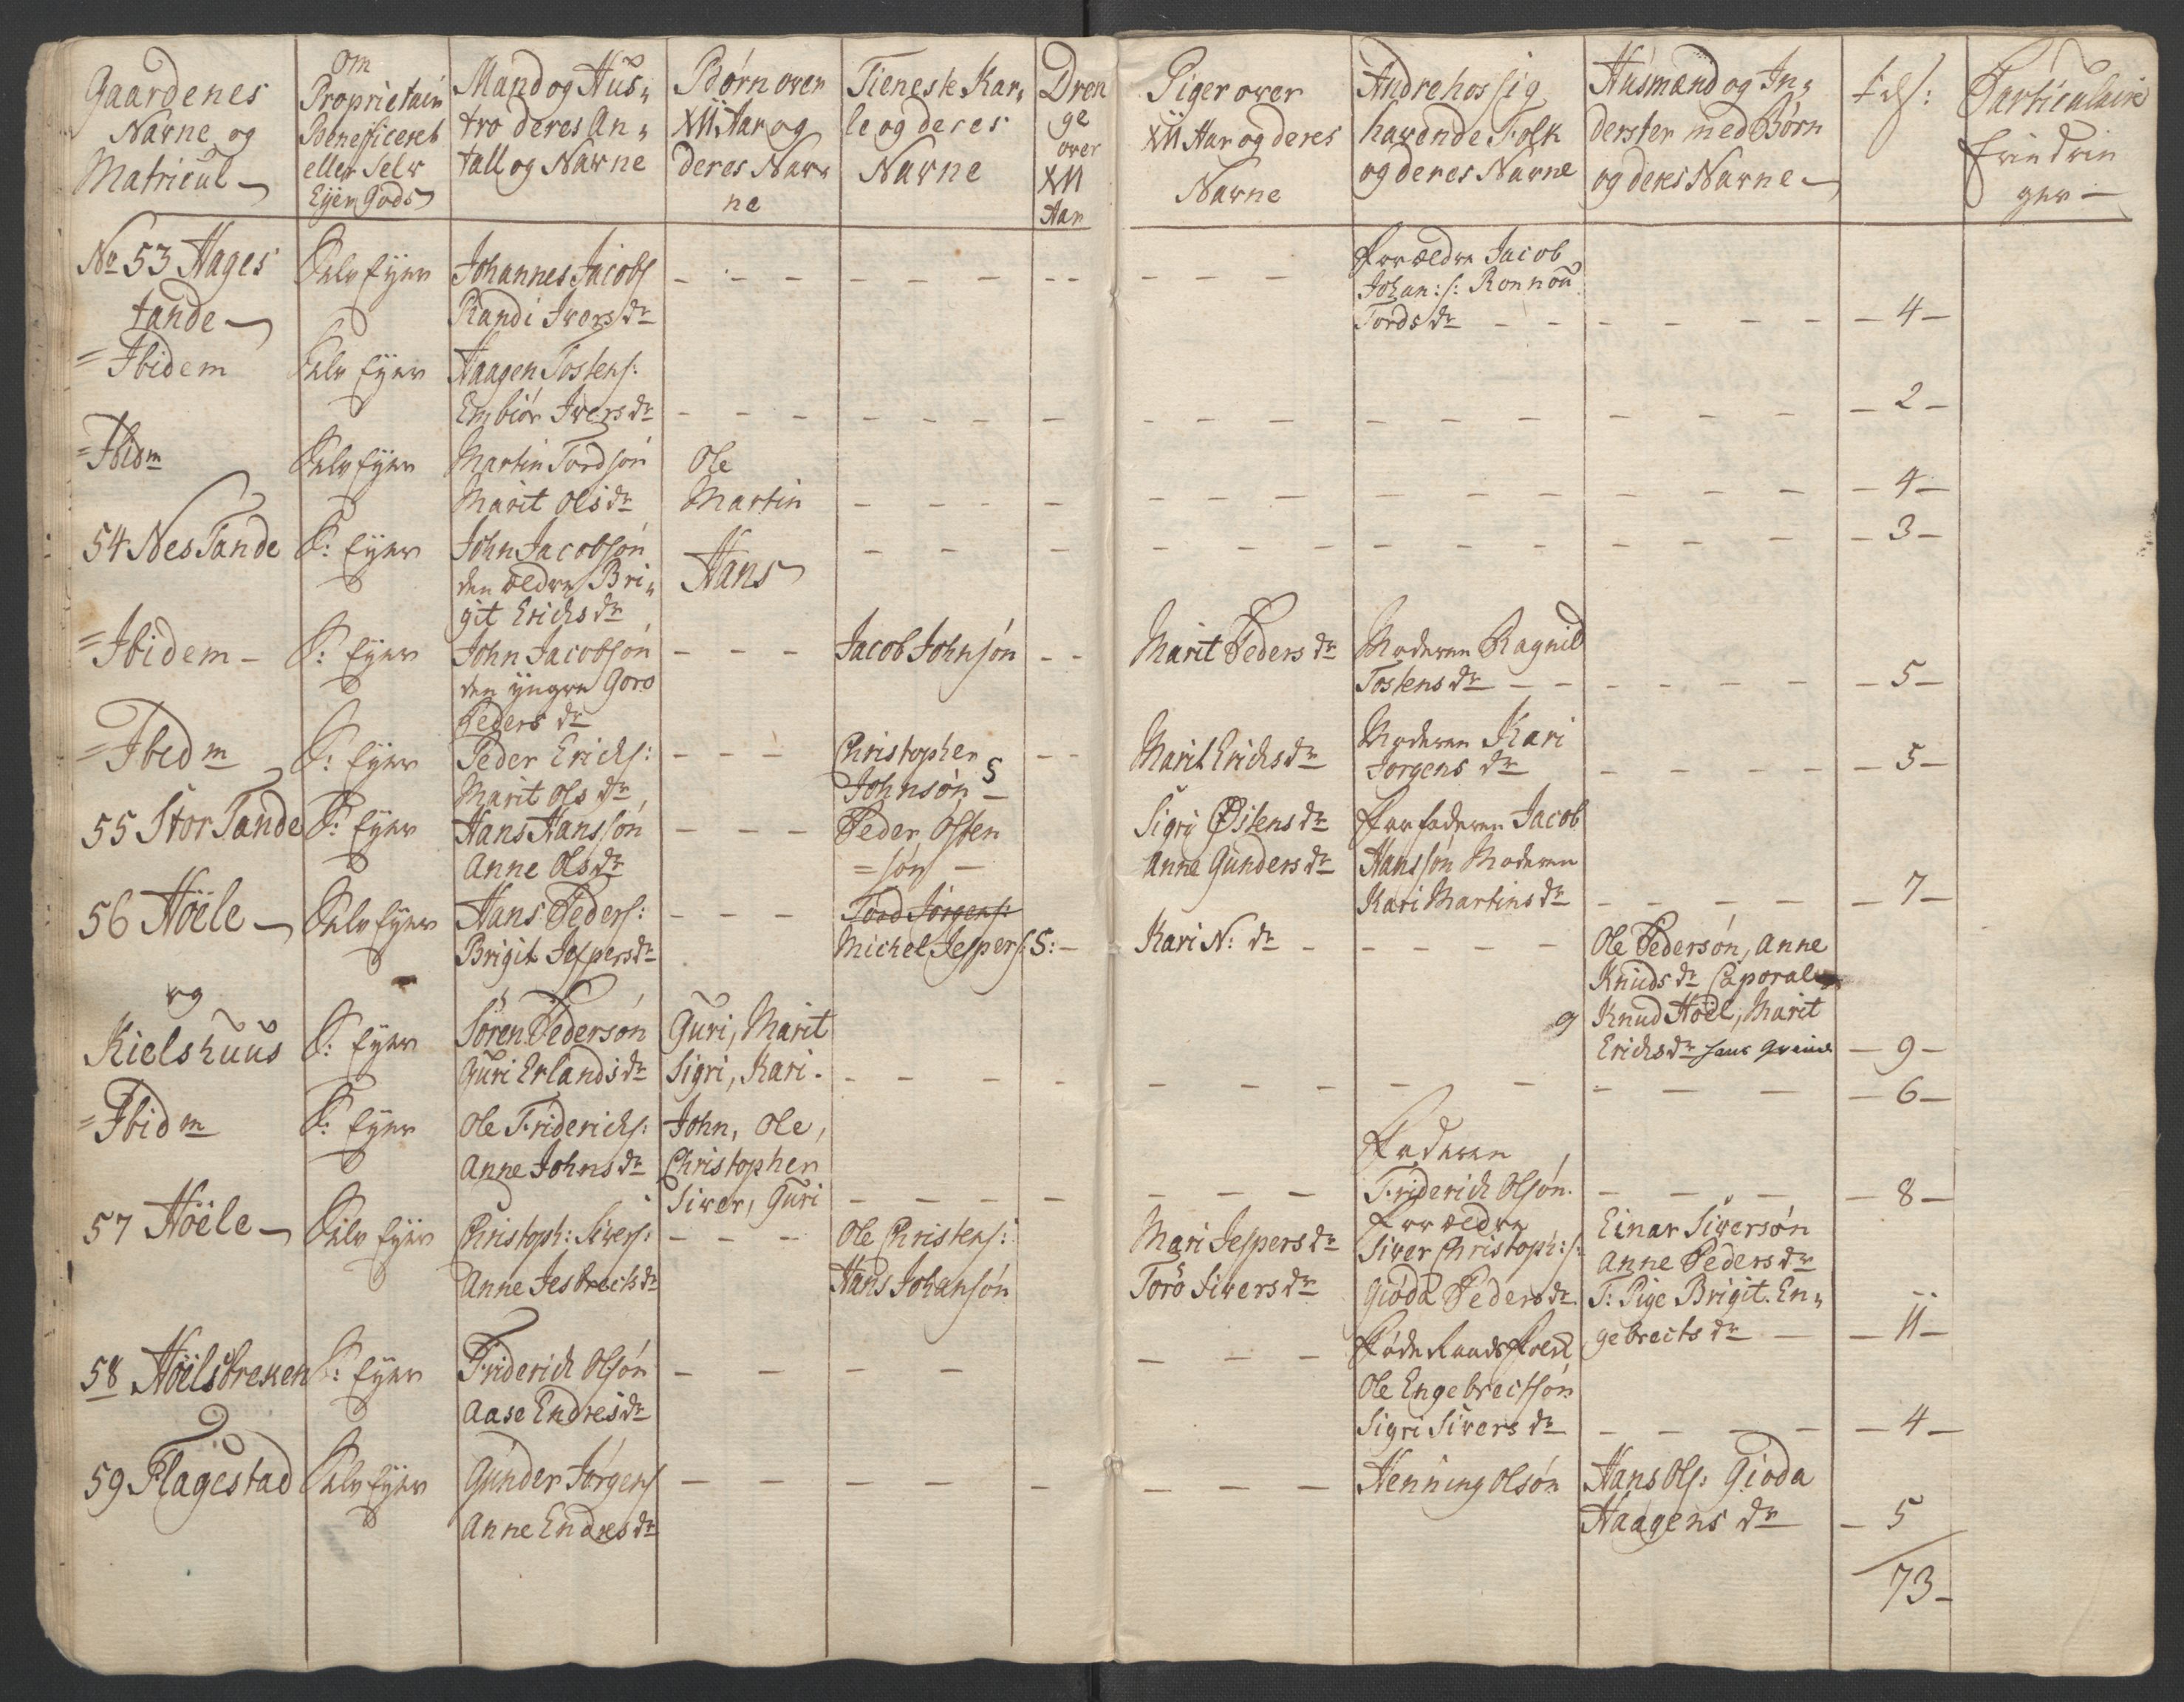 Gaardenes
Navne og
Matricul
Om
Proprietair
Benefficeret
eller Selv
Eyer Gods
Mand og Hus-
tro deres An-
tall og Navne
Børn over
XII Aar og
deres Nav-
ne
Tieneste Kar-
le og deres
Navne
Dren
ge
over
XII
Aar
Piger over
XII Aar og deres
Navne
Andre hos sig
havende Folk
og deres Navne
Husmænd og In-
derster med Børn
og deres Navne
Particulaire
Erindrin
ger
No 53 Hages
tande
Selv Eyer
Johannes Jacobs
Randi Ivers dr
Forældre Jacob
Johan: s: Ronnou
Tords dr
4
= Ibidem
Selv Eyer
Haagen Tostens:
Embiør Ivers dr
2
= Ibidm
Selv Eyer
Martin Tordsøn
Marit Ols dr
Ole
Martin
4
54 Nes Tande
S: Eyer
John Jacobsøn
den ældre Bri-
git Erichs dr
Hans
3
= Ibidem
S: Eyer
John Jacobsøn
den yngre Goro
Peders dr
Jacob Johnsøn
Marit Peders dr
Moderen Ragnild
Tostens dr
5
= Ibidm
S: Eyer
Peder Erichs:
Marit Ols dr
Christopher
Johnsøn S
Marit Erichs dr
Moderen Kari
Jorgens dr
5
55 Stor Tande
S: Eyer
Hans Hanssøn
Anne Ols dr
Peder Østen
= søn
Sigri Østens dr
Anne Gunders dr
Forfaderen Jacob
Hanssøn Moderen
Kari Martins dr
7
56 Høele
Selv Eyer
Hans Peders:
Brigit Jespers dr
Tord Jørgens:
Michel Jespers: S:
Kari N: dr
Ole Pedersøn, Anne
Knuds dr Caporal
g Knud Høel, Marit
Erichs dr
9
og
Kielshuus
S: Eyer
Søren Pedersøn
Guri Erlands dr
Guri, Marit
Sigri, Kari
6
= Ibidm
S: Eyer
Ole Friderichs:
Anne Johns dr
John, Ole,
Christopher
Siver, Guri
Faderen
Friderich Olsøn
8
57 Høele
Selv Eyer
Christoph: Sivers:
Anne Jesbrects dr
Ole Christens:
Hans Johansøn
Mari Jespers dr
Torø Sivers dr
Forældre
Siver Christoph: s:
Gioda Peders dr
Einar Siversøn
Anne Peders dr
T: Pige Brigit. En-
gebrects dr
11
58 Høelsbreken
S: Eyer
Friderich Olsøn
Aase Endres dr
Føde Raads Folk
Ole Engebrectsøn
Sigri Sivers dr
4
59 Flagestad
Selv Eyer
Gunder Jørgens
Anne Endres dr
Henning Olsøn
Hans Ols: Gioda
Haagens dr
5
73